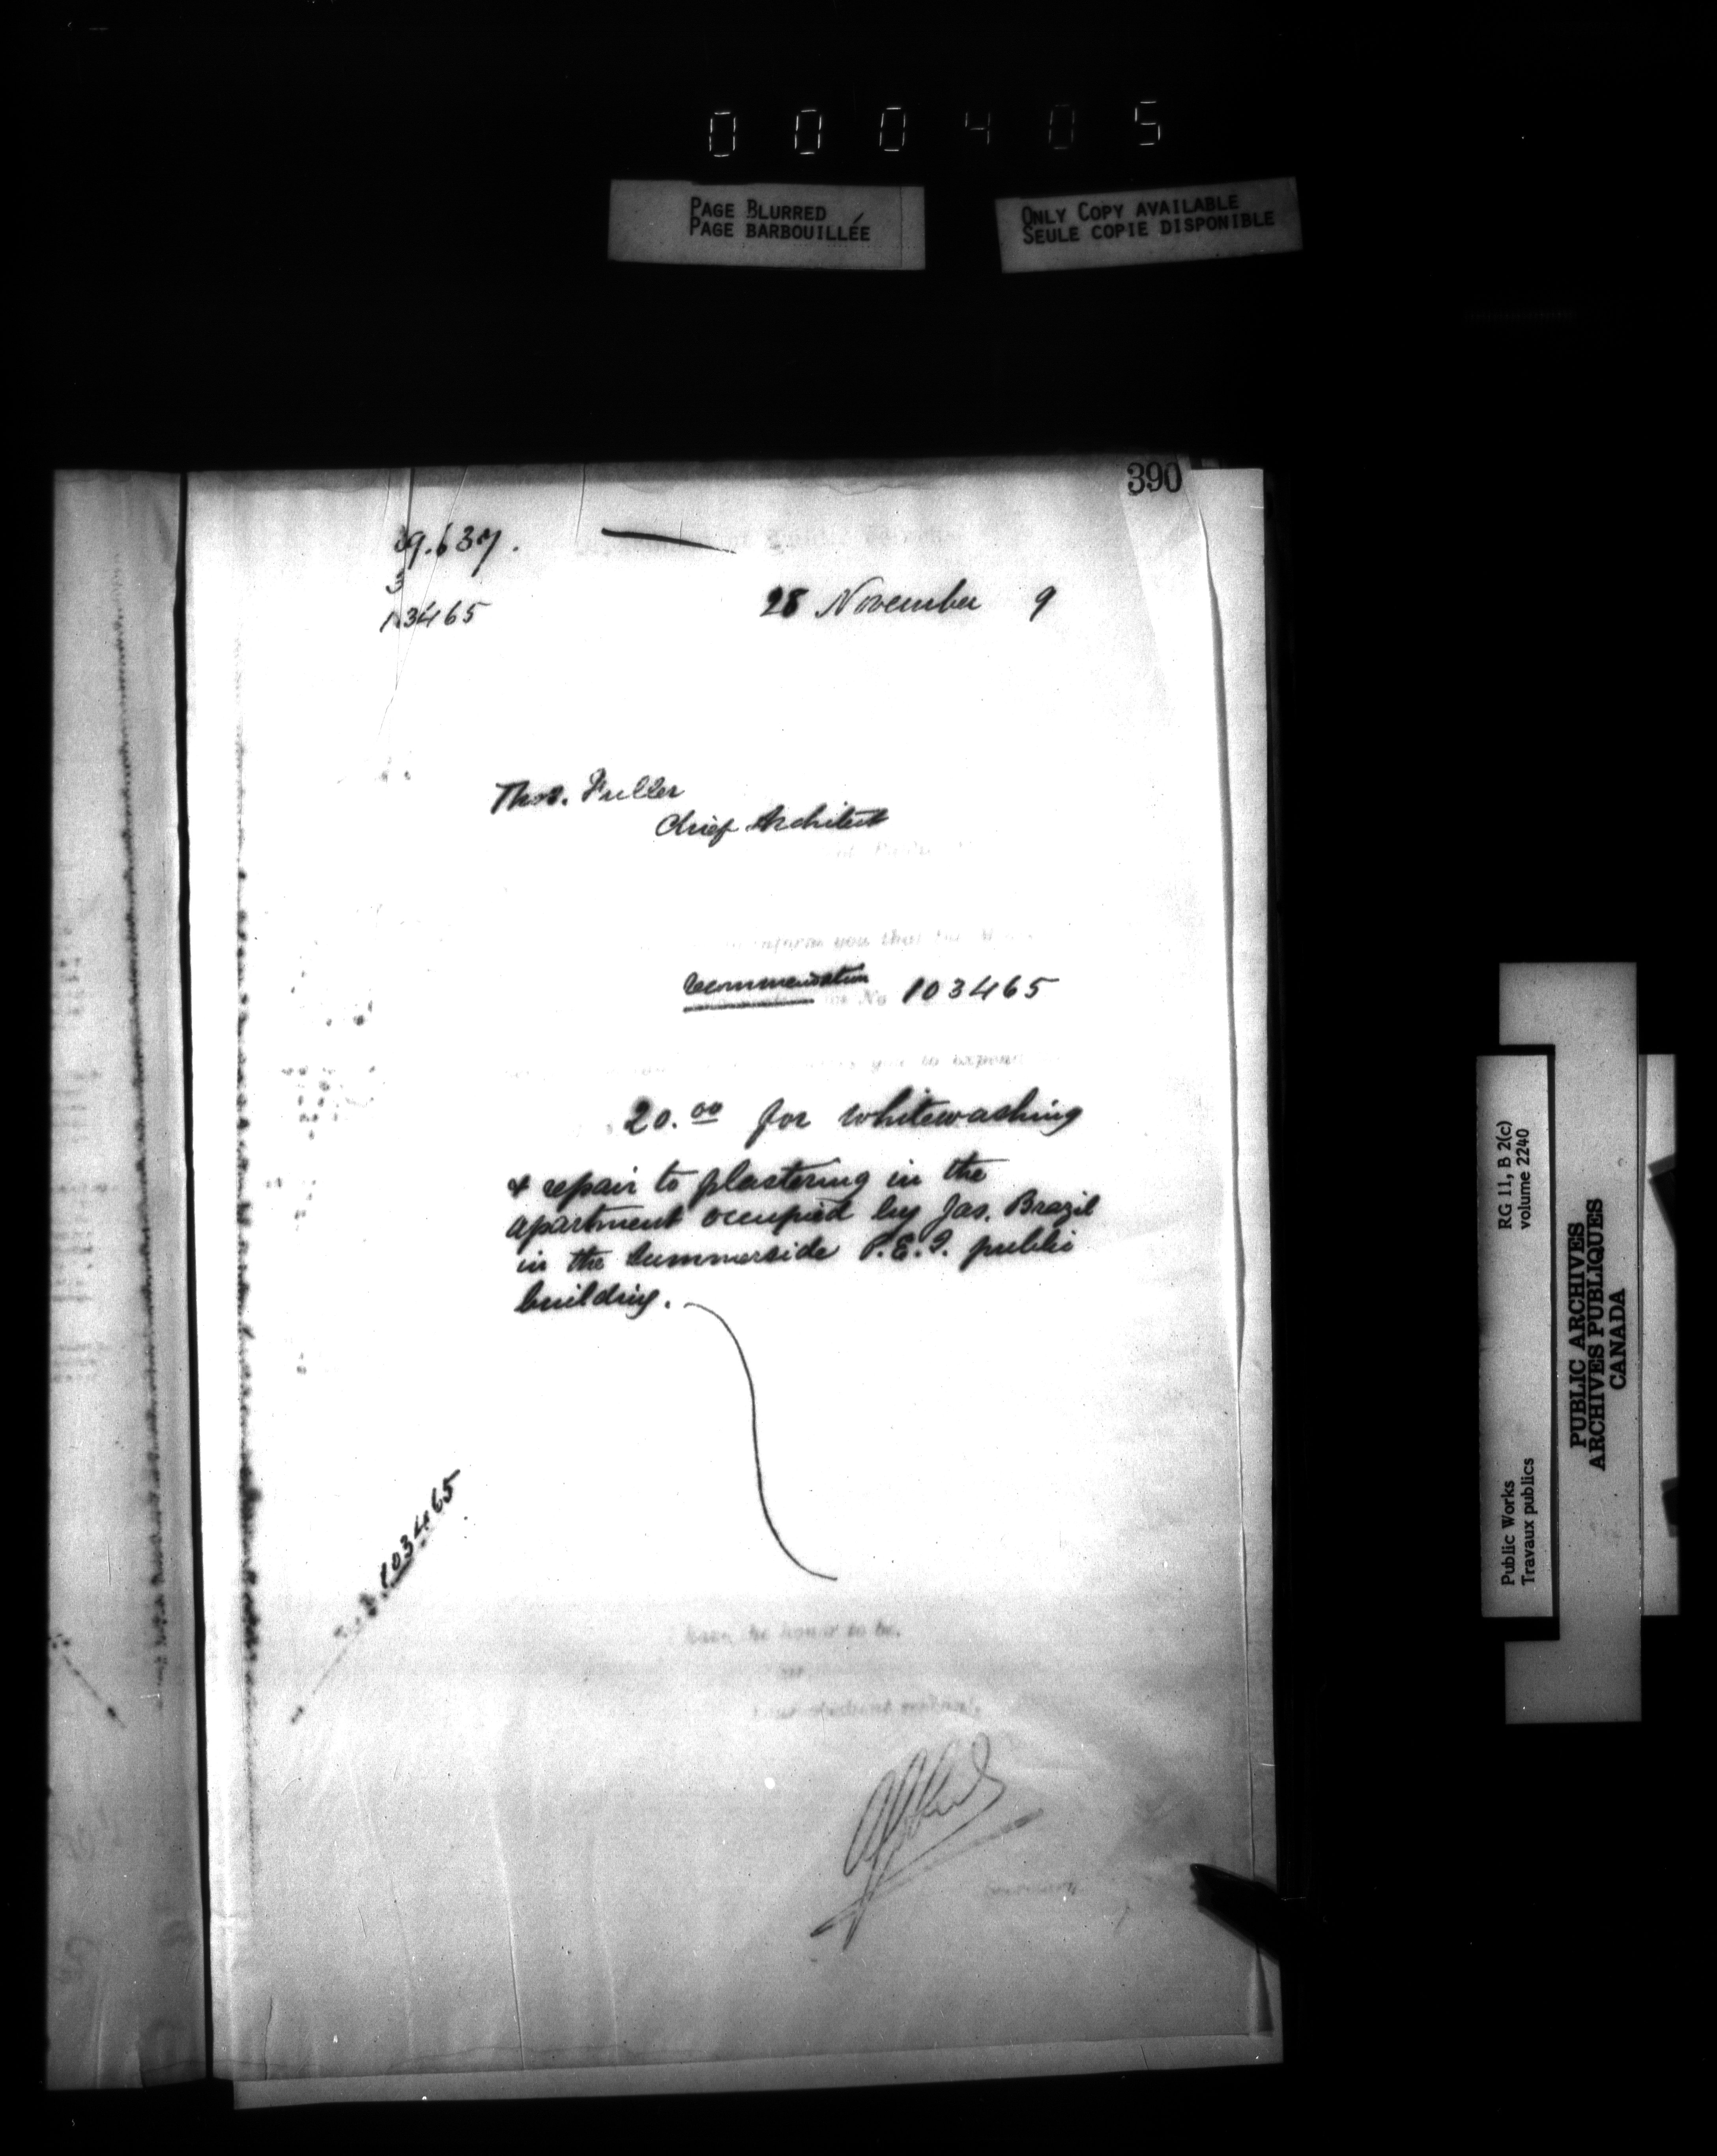 000405
PAGE BLURRED
PAGE BARBOUILLÉE
ONLY COPY AVAILABLE
SEULE COPIE DISPONIBLE
390
28 November 9
103465
Thos. Fuller
Chief Architect
inform you that
recommendation No 103465
you to expend
20.00 for whitewashing
& repair to plastering in the
apartment occupied by Jas. Brazil
in the Summerside P.E.I. public
building.
103465
have the honor to be,
Your obedient servant,
Secretary.
RG 11, B 2(c)
volume 2240
Public Works
Travaux publics
PUBLIC ARCHIVES
ARCHIVES PUBLIQUES
CANADA